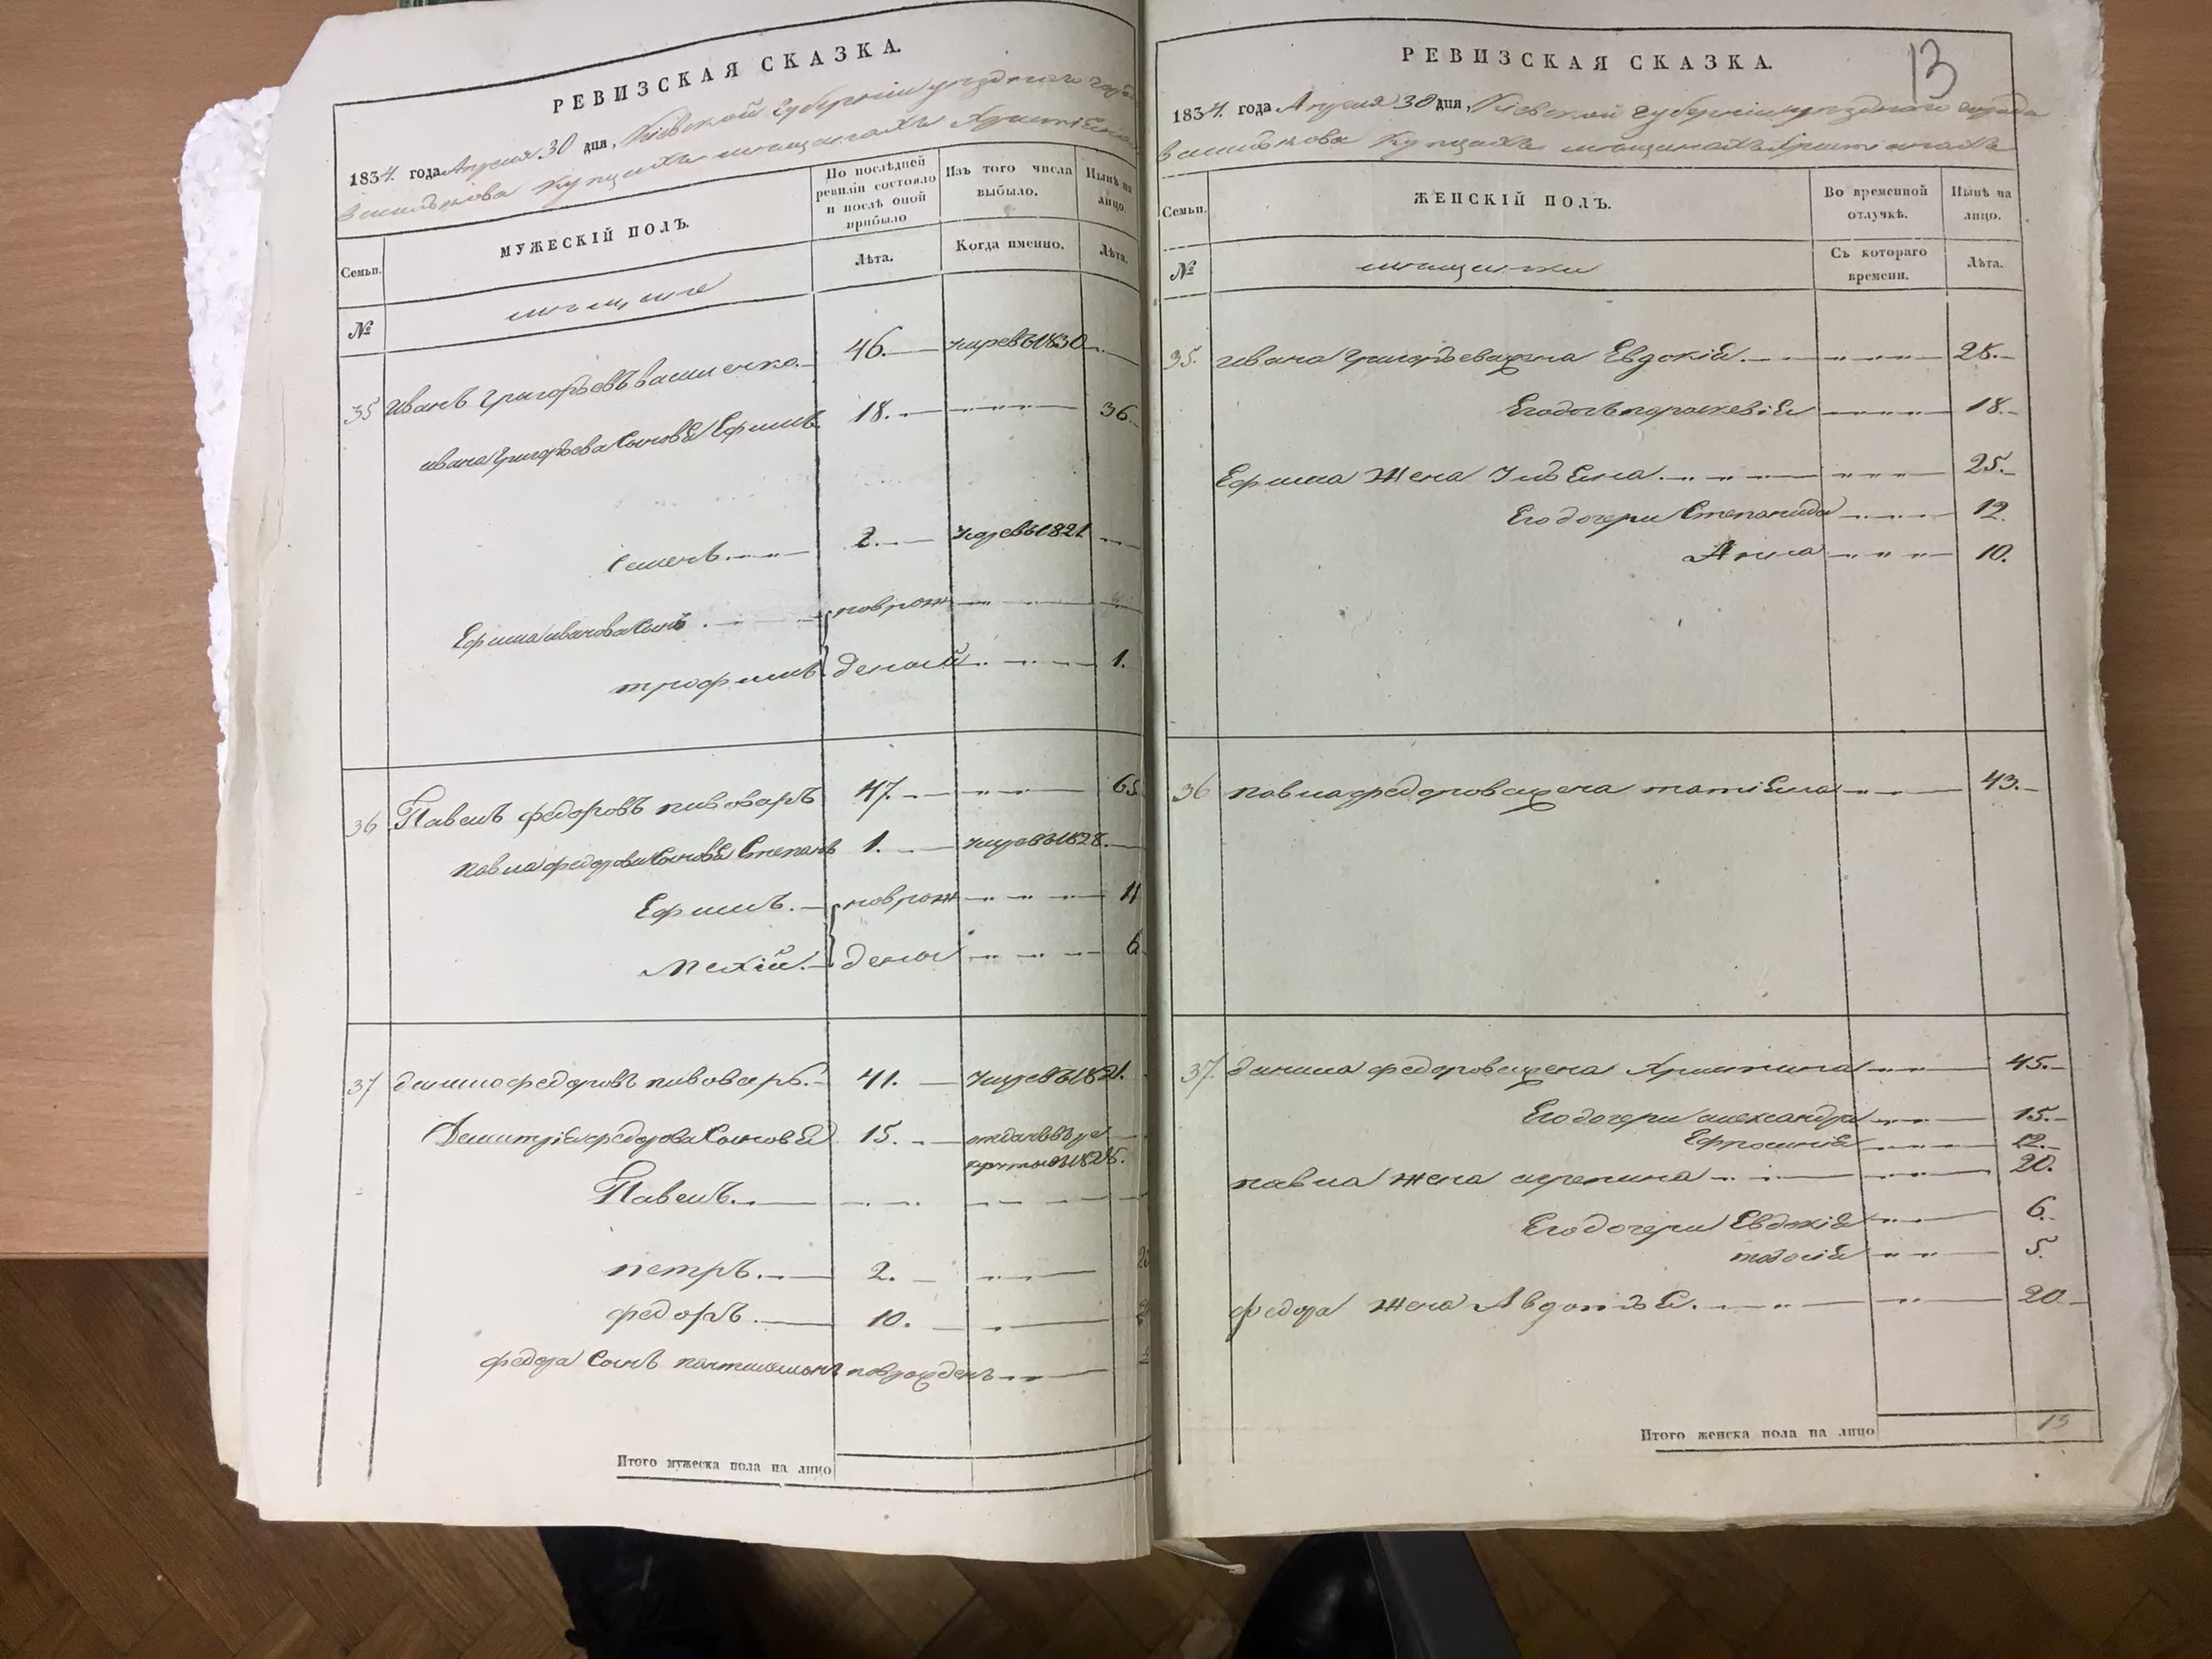 РЕВИЗСКАЯ СКАЗКА.
1834. года Апреля 30 дня, Кіевской губерніи уезднаго горо
Василькова Купцахъ мещанахъ Христіяна
Семьи.
МУЖЕСКІЙ ПОЛЪ.
По послѣдней ревизіи состояло и послѣ оной прибыло
Изъ того числа выбыло.
Нынѣ на лицо.
№
мещане
Лѣта.
Когда именно.
Лѣта.
35 Иванъ Григорьевъ 46. умре въ 1830
Ивана Григорьева Сыновья Ефимъ 18. 36
Семенъ 2. умре въ 1821
Ефима Иванова Сынъ новрож
трофимъ деный 1.
36 Павелъ федоровъ пивоваръ 47. 65
Павла федорова Сыновья Степанъ 1. умре въ 1828.
Ефимъ. новрож 11
денои 6
37 данило федоровъ пивоваръ. 41. умре въ 1821.
федорова Сыновья 15. отданъ въ ре
круты въ 1828.
Павелъ
петръ. 2.
федоръ 10.
федора Сынъ
Итого мужеска пола на лицо
РЕВИЗСКАЯ СКАЗКА. 13
1834. года Апреля 30 дня, Кіевской губерніи уезднаго города
Василькова Купцахъ мещанахъ Христіянахъ
Семьи.
ЖЕНСКІЙ ПОЛЪ.
Во временной отлучкѣ.
Нынѣ на лицо.
№
мещанки
Съ котораго времени.
Лѣта.
35. Ивана Григорьева жена Евдокія. 28.
Его дочь параскевія 18.
Ефима Жена Ульяна. 25.
Его дочери Степанида 12.
Анна 10.
36 павла федорова жена татіяна 43.
37. данила федорова жена Христина 45.
Его дочери александра 15.
Ефросинія 12.
павла жена 20.
Его дочери Евдокія 6.
5.
федора жена Авдотья. 20
Итого женска пола на лицо 13